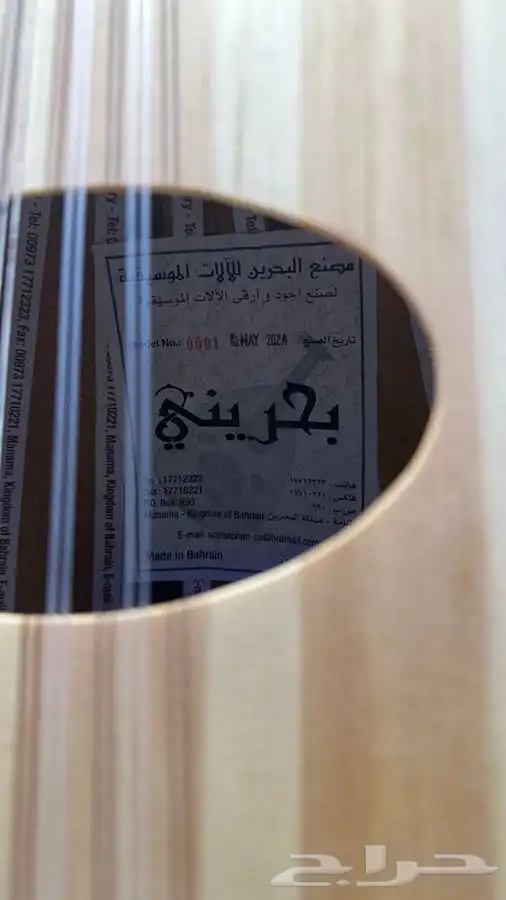 مصنع البحرين للآلات الموسيقية
لصنع أجود و أرقى الآلات الموسيقية
Model No.: 0001 MAY 2024 تاريخ الصنع:
بحريني
Tel : 17712323 هاتف : ١٧٧١٢٣٢٣
Fax: 17710221 فاكس : ١٧٧١٠٢٢١
P.O. Box: 690 ص.ب : ٦٩٠
Manama - Kingdom of Bahrain المنامة - مملكة البحرين
E-mail:
Made in Bahrain
- Tel: 00973 17712323, Fax: 00973 17710221, Manama, Kingdom of Bahrain, E-mail
17710221, Manama, Kingdom of Bahrain, E-mail:
حراج